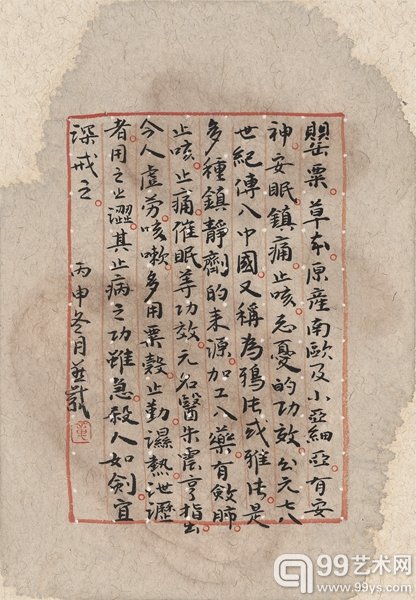 罌粟草本原產南歐及小亞細亞有安
神安眠鎮痛止咳忘憂的功效公元七八
世紀傳入中國又稱為鴉片或雅片是
多種鎮靜劑的來源加工入藥有斂肺
止咳止痛催眠等功效元名醫朱震亨指出
今人虛勞咳嗽多用粟殼止勤濕熱泄瀝
者用之止澀其止病之功雖急殺人如劍宜
深戒之 丙申冬月
99艺术网
www.99ys.com